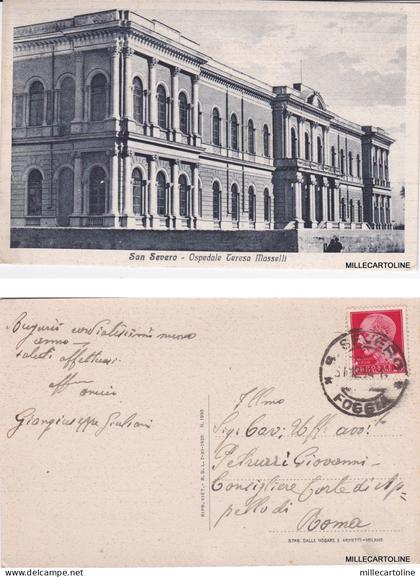 San Severo - Ospedale Teresa Masselli
MILLECARTOLINE
Auguri cordialissimi nuovo
anno
saluti affettuosi
aff
amico
Giangiuseppe Giuliani
S. SEVERO
FOGGIA
Ill.mo
Sig. Cav. Uff. avv.to
Petruzzi Giovanni
Consigliere Corte di Ap
pello di
Roma
RIPR. VIET. - R. D. L. 7-XI-1925 N. 1950
STAB. DALLE NOGARE & ARMETTI - MILANO
MILLECARTOLINE
© millecartoline
millecartoline